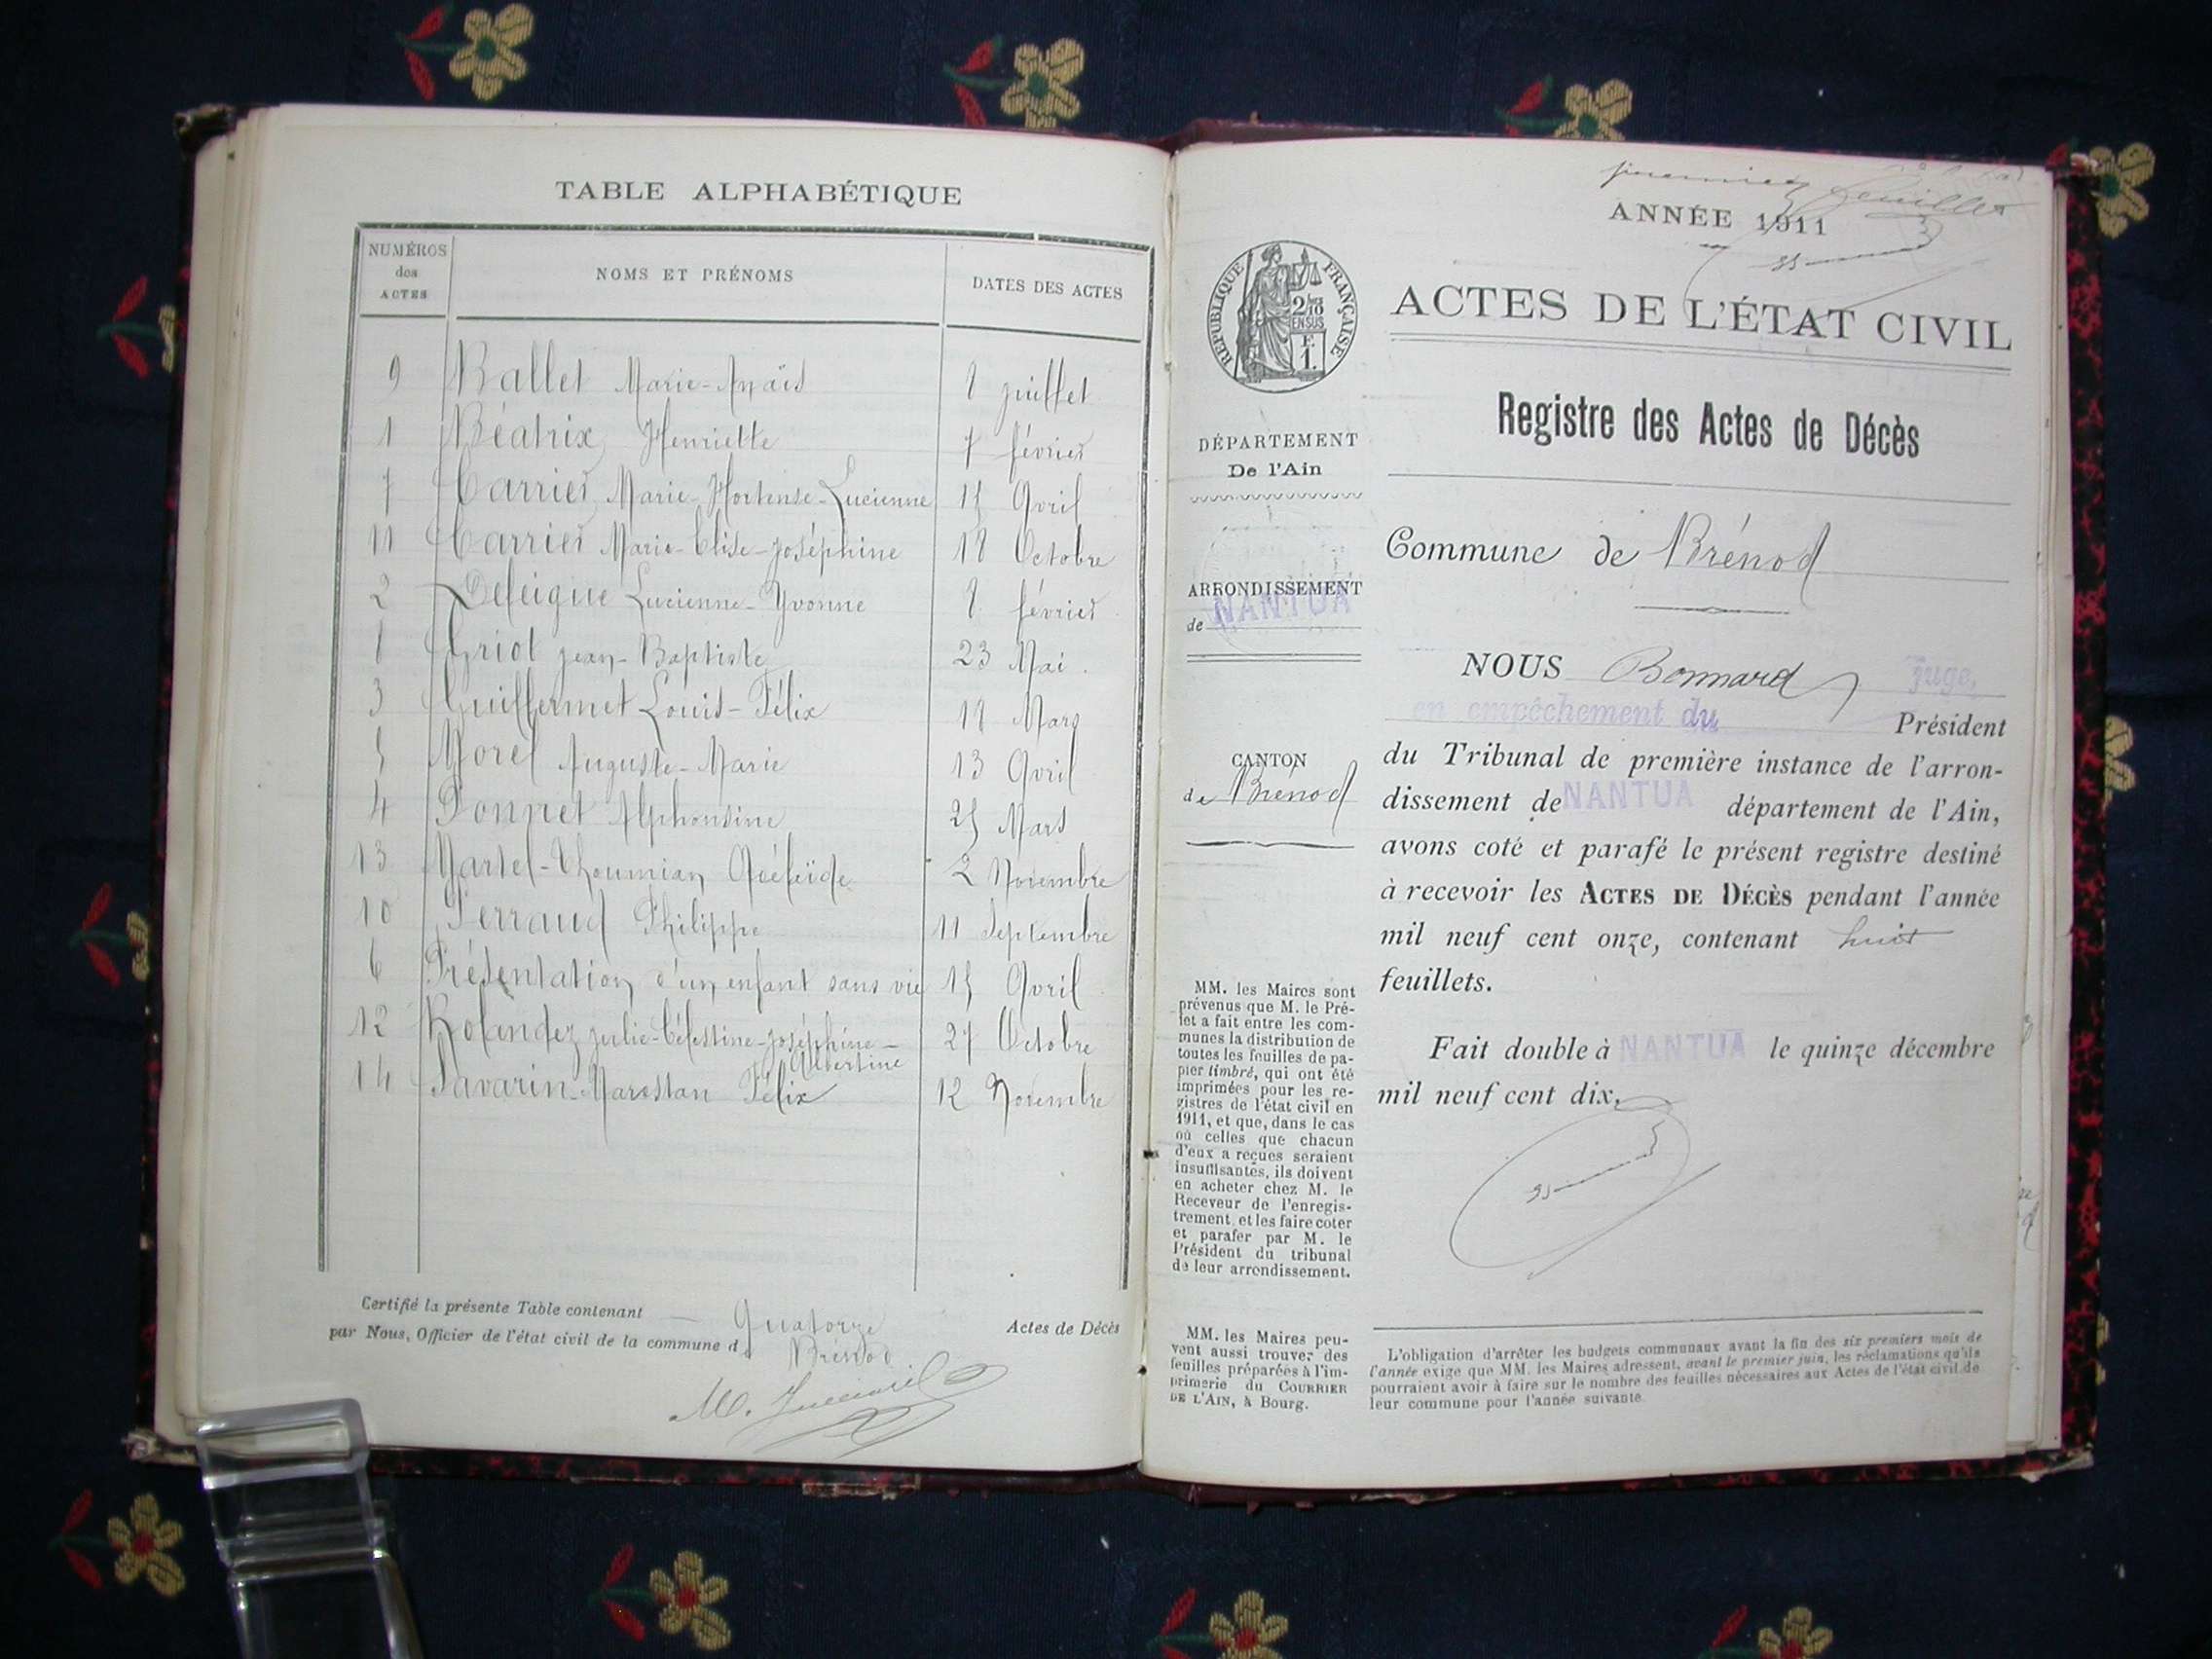 TABLE ALPHABÉTIQUE
NUMÉROS
des
ACTES
NOMS ET PRÉNOMS
DATES DES ACTES
9 Ballet Marie-Anaïs 8 juillet
1 Béatrix Henriette 7 février
7 Carrier Marie-Hortense-Lucienne 15 Avril
11 Carrier Marie-Elise-Joséphine 18 Octobre
2 Lucienne-Yvonne 8 février
8 Griot Jean-Baptiste 23 Mai
3 Guillermet Louis-Félix 18 Mars
5 Morel Auguste-Marie 13 Avril
4 Alphonsine 25 Mars
13 Martel-Thoumian Adélaïde 2 Novembre
10 Perraud Philippe 11 Septembre
6 Présentation d'un enfant sans vie 15 Avril
12 Rolandez Julie-Célestine-Joséphine-
Albertine 27 Octobre
14 Savarin-Marestan Félix 12 Novembre
Certifié la présente Table contenant Quatorze Actes de Décès
par Nous, Officier de l'état civil de la commune de Brénod
premier feuillet
ANNÉE 1911
RÉPUBLIQUE FRANÇAISE
2/10
EN SUS
F.
1.
ACTES DE L'ÉTAT CIVIL
Registre des Actes de Décès
DÉPARTEMENT
De l'Ain
ARRONDISSEMENT
de NANTUA
CANTON
de Brénod
MM. les Maires sont
prévenus que M. le Pré-
fet a fait entre les com-
munes la distribution de
toutes les feuilles de pa-
pier timbré, qui ont été
imprimées pour les re-
gistres de l'état civil en
1911, et que, dans le cas
où celles que chacun
d'eux a reçues seraient
insuffisantes, ils doivent
en acheter chez M. le
Receveur de l'enregis-
trement, et les faire coter
et parafer par M. le
Président du tribunal
de leur arrondissement.
MM. les Maires peu-
vent aussi trouver des
feuilles préparées à l'im-
primerie du COURRIER
DE L'AIN, à Bourg.
Commune de Brénod
NOUS Bonnard juge,
en empêchement du Président
du Tribunal de première instance de l'arron-
dissement de NANTUA département de l'Ain,
avons coté et parafé le présent registre destiné
à recevoir les ACTES DE DÉCÈS pendant l'année
mil neuf cent onze, contenant huit
feuillets.
Fait double à NANTUA le quinze décembre
mil neuf cent dix.
L'obligation d'arrêter les budgets communaux avant la fin des six premiers mois de
l'année exige que MM. les Maires adressent, avant le premier juin, les réclamations qu'ils
pourraient avoir à faire sur le nombre des feuilles nécessaires aux Actes de l'état civil de
leur commune pour l'année suivante.